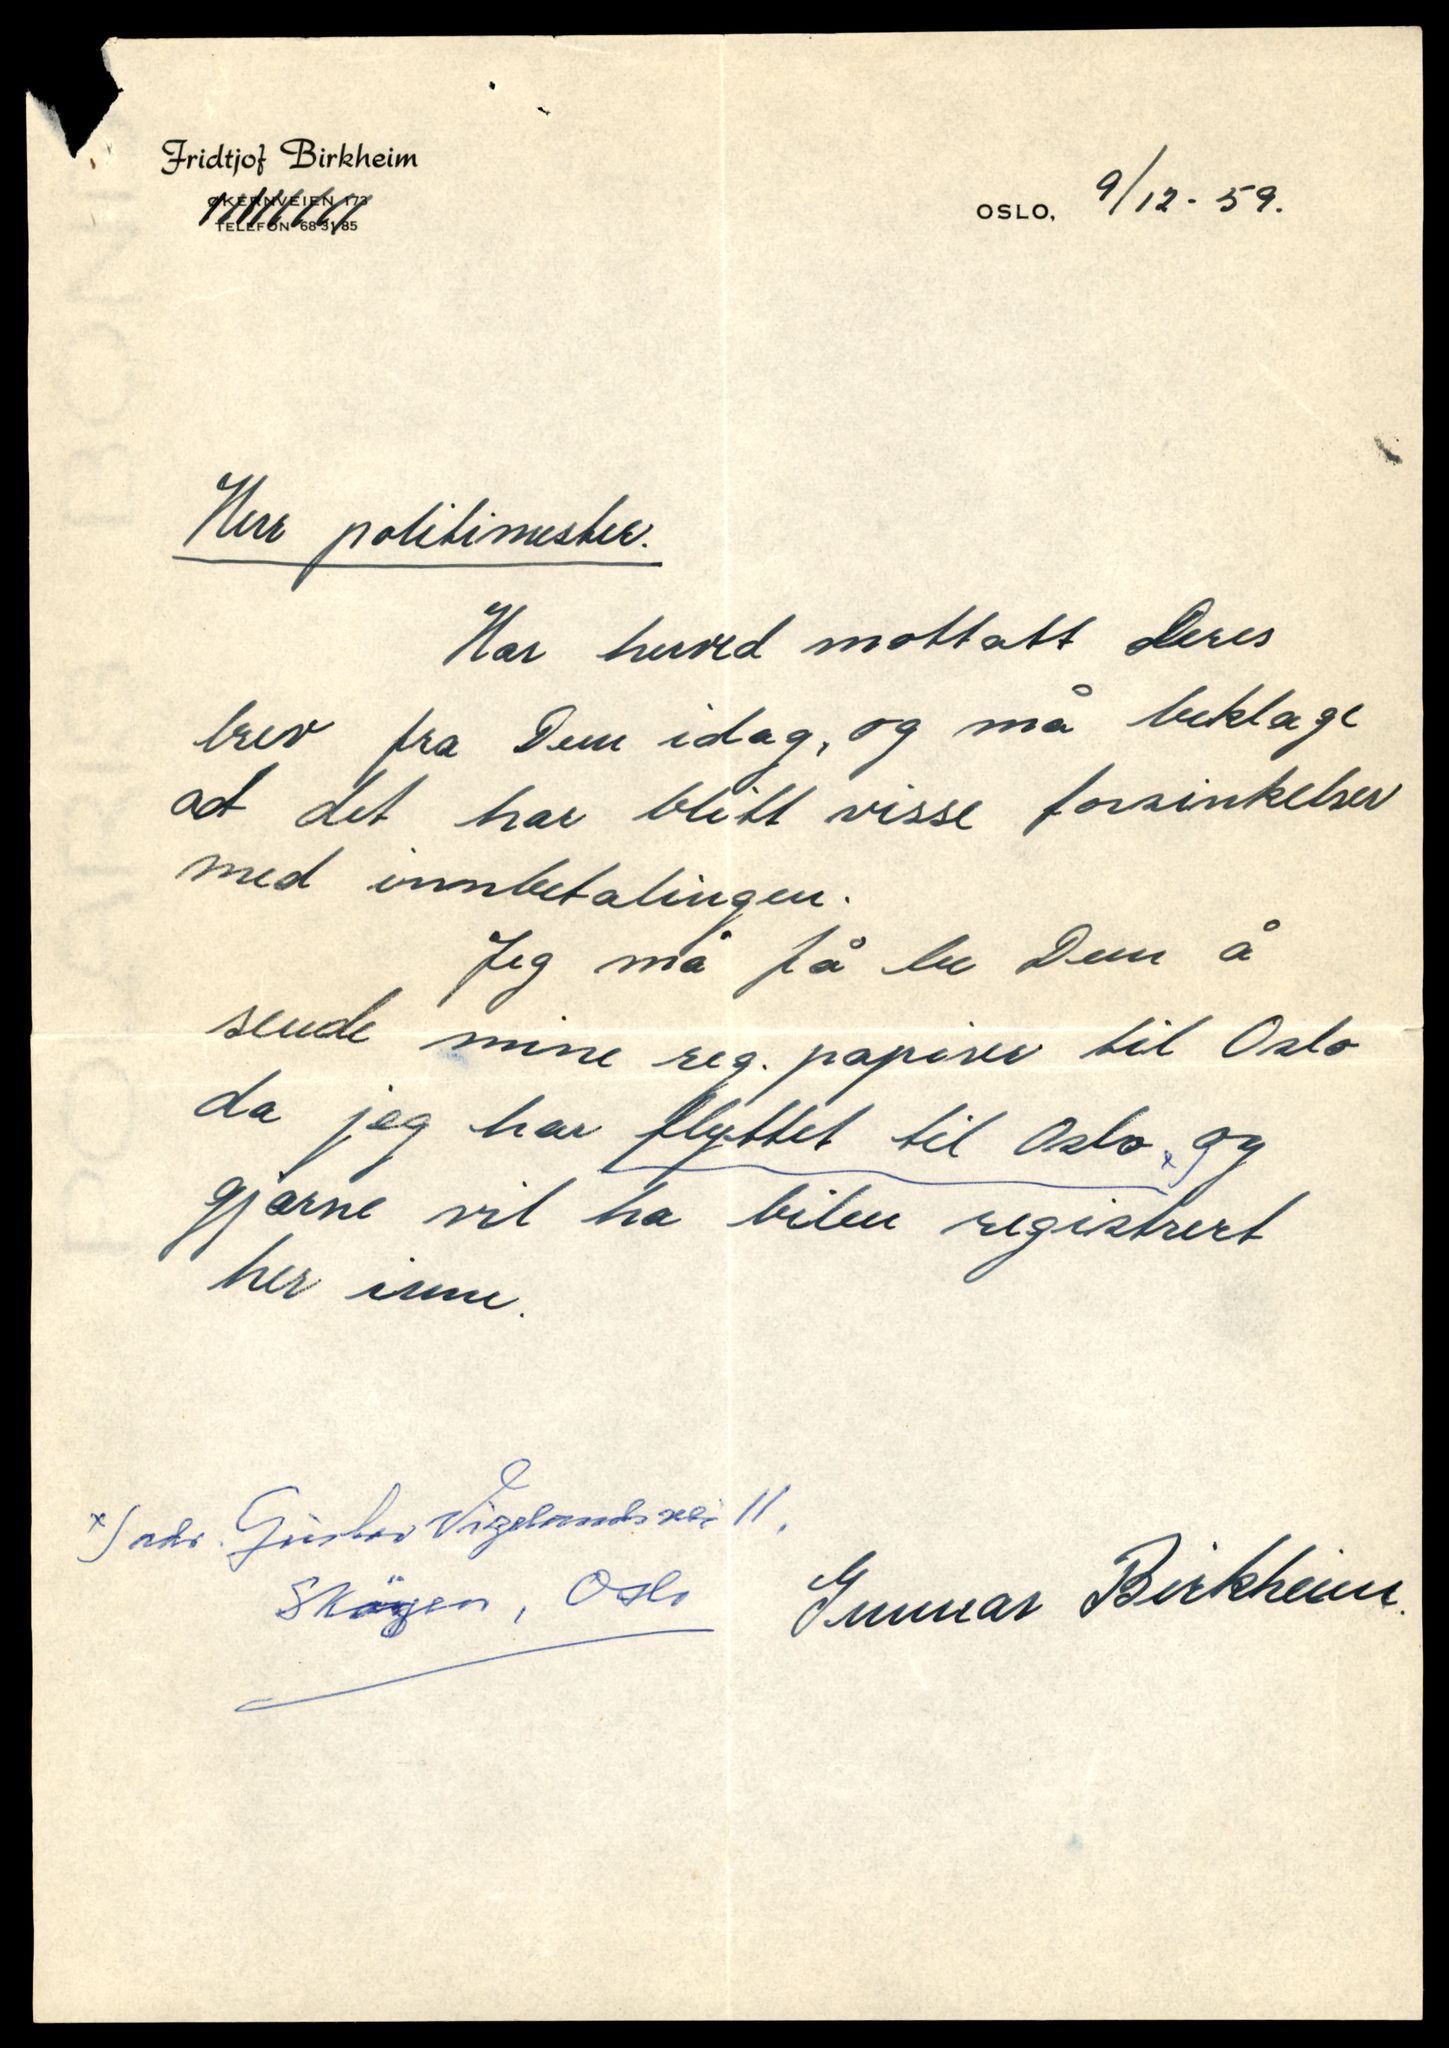 Fridtjof Birkheim
ØKERNVEIEN 173
TELEFON 68 31 85
OSLO, 9/12 - 59.
Herr politimester.
Har herved mottatt Deres
brev fra Dem idag, og må beklage
at det har blitt visse forsinkelser
med innbetalingen.
Jeg må få be Dem å
sende mine reg. papirer til Oslo
da jeg har flyttet til Oslo x) og
gjerne vil ha bilen registrert
her inne.
x) adr. Gustav Vigelandsvei 11,
Skøyen, Oslo
Gunnar Birkheim.